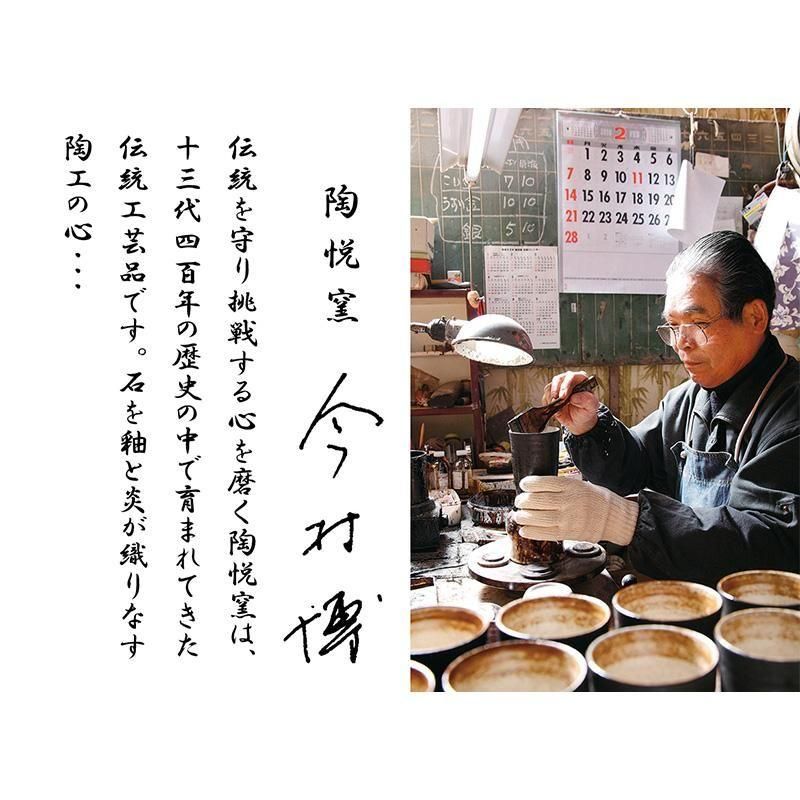 陶悦窯 今村博
伝統を守り挑戦する心を磨く陶悦窯は、
十三代四百年の歴史の中で育まれてきた
伝統工芸品です。石を釉と炎が織りなす
陶工の心・・・
2
1 2 3 4 5 6
7 8 9 10 11 12 13
14 15 16 17 18 19 20
21 22 23 24 25 26
28
7 10
10 10
銀 5 10